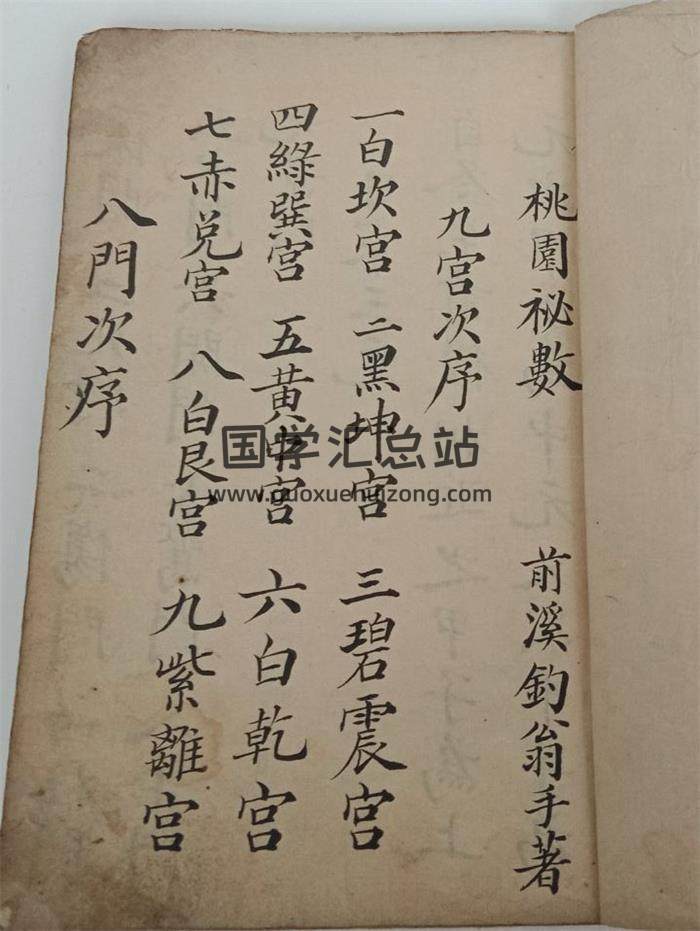 桃園祕數 前溪釣翁手著
九宮次序
一白坎宮 二黑坤宮 三碧震宮
四綠巽宮 五黃中宮 六白乾宮
七赤兌宮 八白艮宮 九紫離宮
八門次序
国学汇总站
www.guoxuehuizong.com